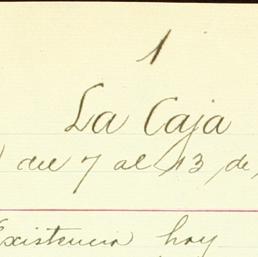 1
La Caja
) del 7 al 13 de
Existencia hoy